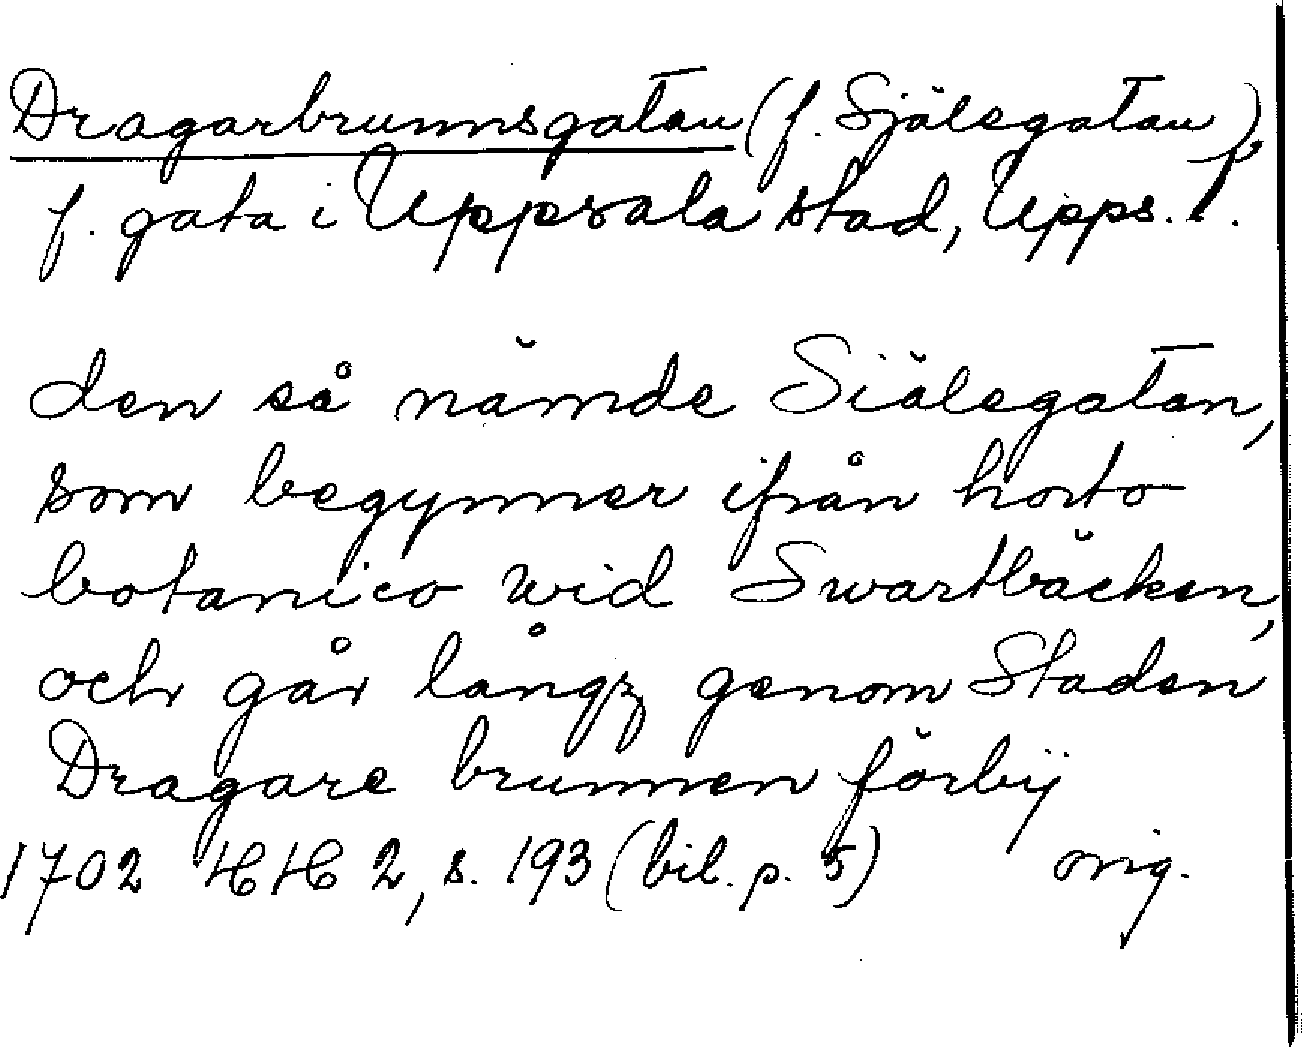 Dragarbrunnsgatan (f. Själegatan),
f. gata i Uppsala stad, Upps. l.
den så nämde Siälegatan,
som begynner ifrån horto
botanico wid Swartbäcken,
och går långz genom Staden
Dragare brunnen förbij
1702 HH 2, s. 193 (bil. p. 5) orig.